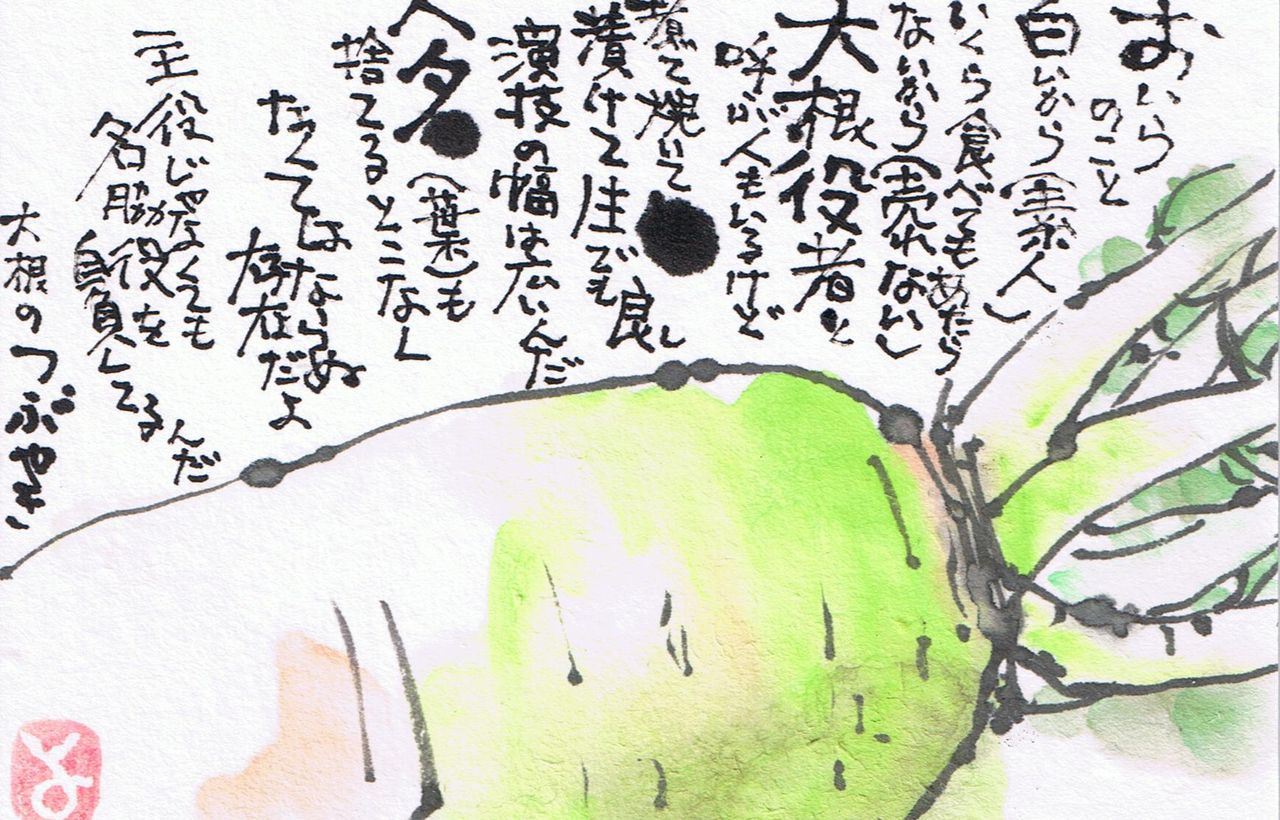 おいら
のこと
白いから(素人)
いくら食べてもあたら
ないから(売れない)
大根役者と
呼ぶ人もいるけど
煮て焼いて
漬けて生でも良し
演技の幅は広いんだ
ヘタ(葉)も
捨てるとこなし
なくてはならぬ
存在だよ
主役じゃなくても
名脇役を
自負してるんだ
大根のつぶやき
よ